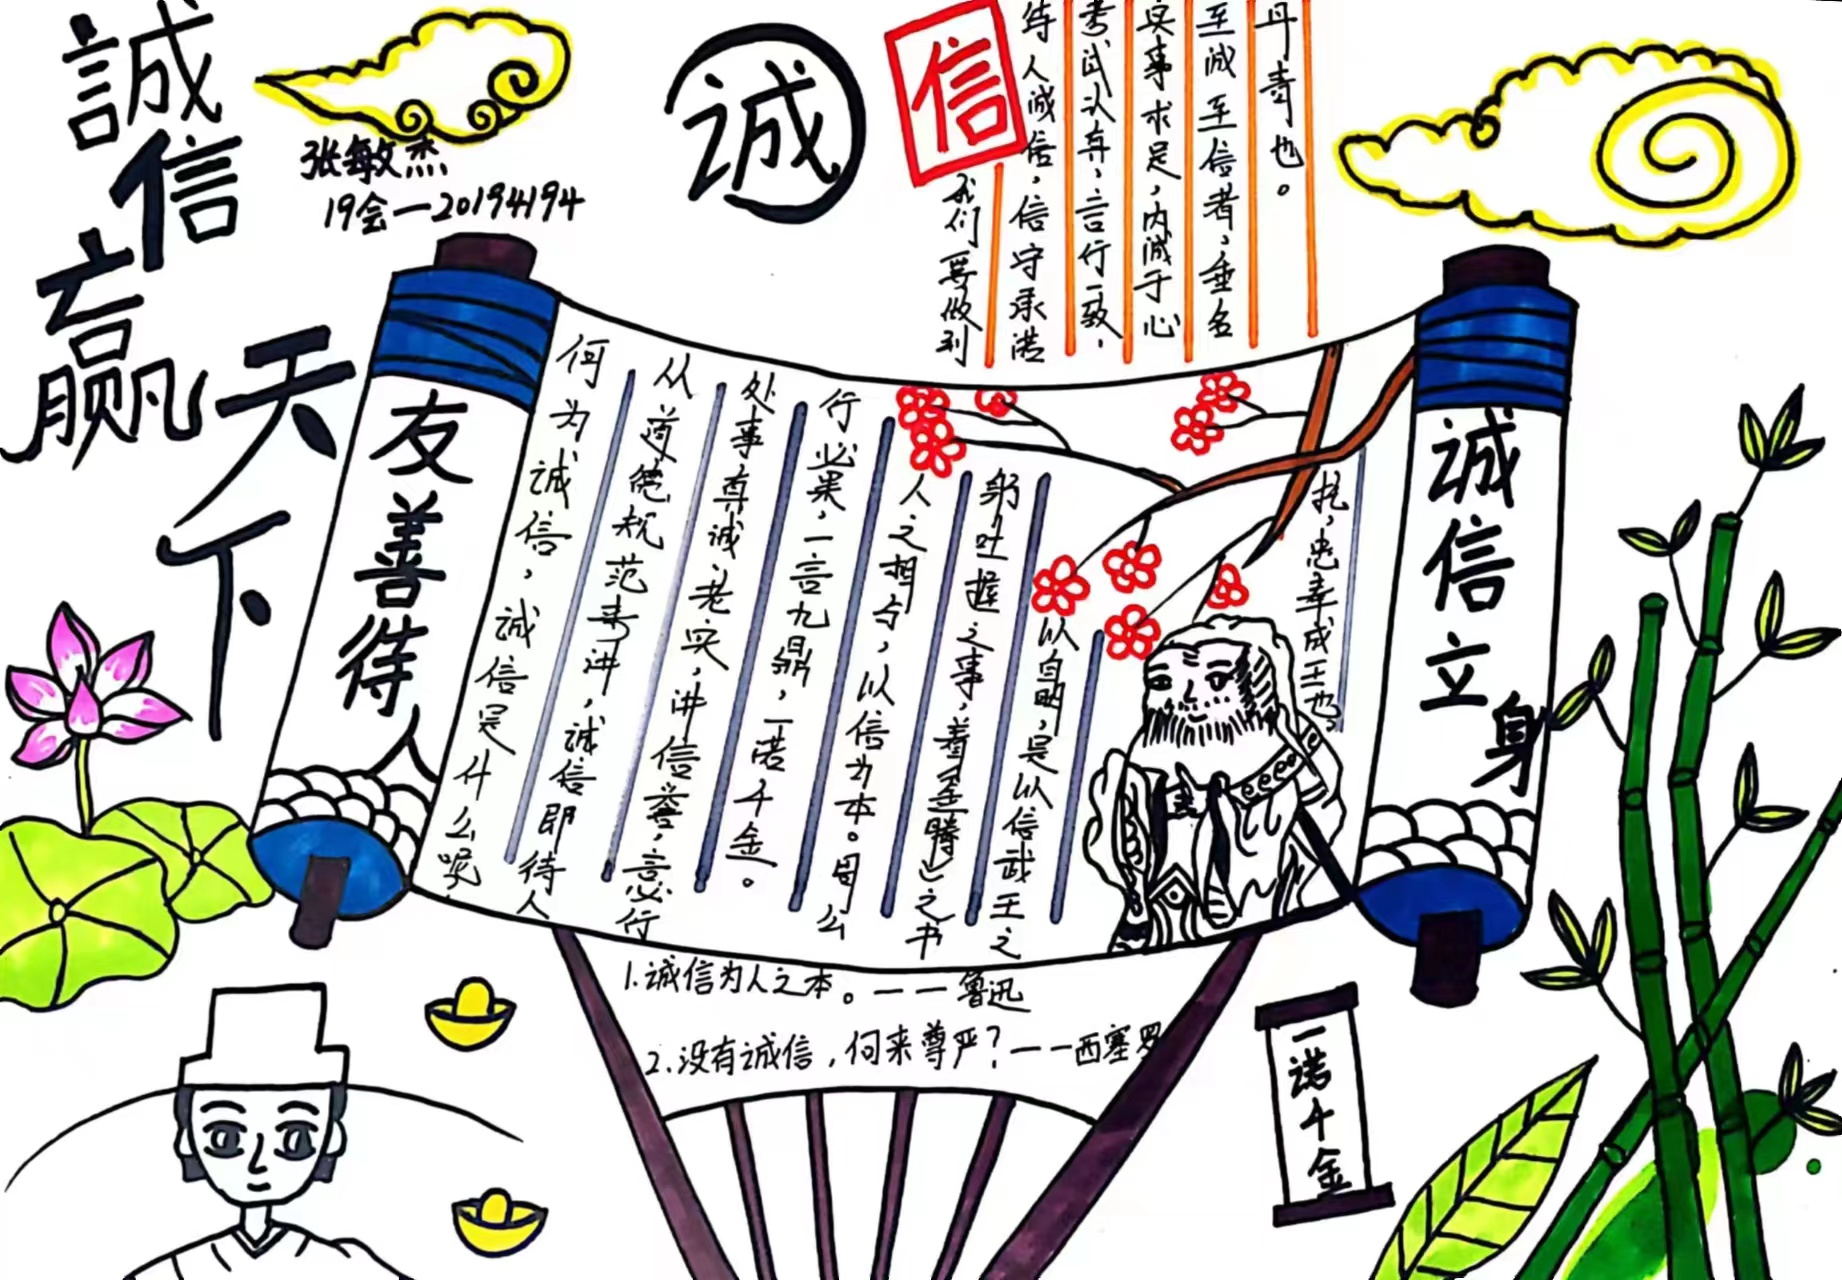 誠信
赢
天下
张敏杰
19会一20194194
诚
信
我们要做到
待人诚信，信守承诺
考试认真，言行一致，
实事求是，内诚于心
至诚至信者，垂名
丹青也。
友善待人
何为诚信，诚信是什么呢
从道德规范来讲，诚信即待人
处事真诚、老实，讲信誉，言必行
行必果，一言九鼎，一诺千金。
人之相与，以信为本。周公
躬吐握之事，着金縢》之书
以自明，是以信武王之
托，忠幸成王也，
诚信立身
1.诚信为人之本。——鲁迅
2.没有诚信，何来尊严？——西塞罗
一诺千金